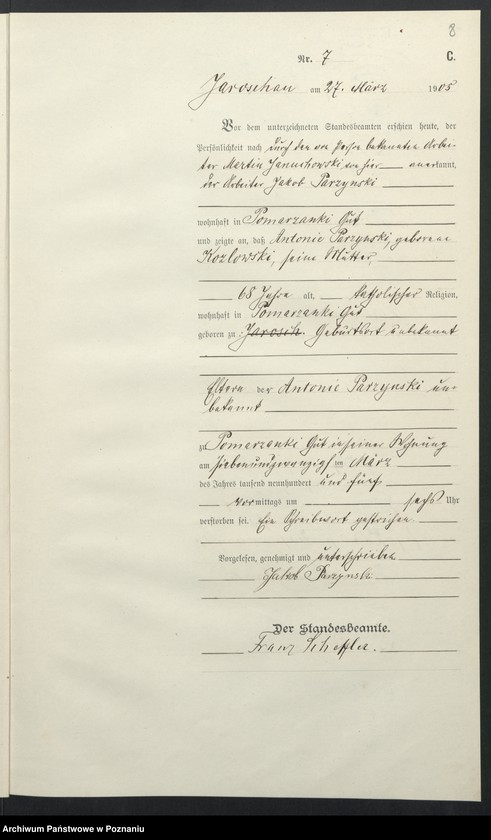 8
Nr. 7 C.
Jaroschau am 27. März 1905
Vor dem unterzeichneten Standesbeamten erschien heute, der
Persönlichkeit nach durch den von Person bekannten Arbei-
ter Martin Januchowski von hier anerkannt,
der Arbeiter Jakob Parzynski
wohnhaft in Pomarzanki Gut
und zeigte an, daß Antonie Parzynski, geborene
Kozlowski, seine Mutter,
68 Jahre alt, katholischer Religion,
wohnhaft in Pomarzanki Gut
geboren zu Jarosch. Geburtsort unbekannt
Eltern der Antonie Parzynski un-
bekannt
zu Pomarzanki Gut in seiner Wohnung
am siebenundzwanzigsten März
des Jahres tausend neunhundert und fünf
vormittags um sechs Uhr
verstorben sei. Ein Schreibwort gestrichen.
Vorgelesen, genehmigt und unterschrieben
Jakob Parzynski
Der Standesbeamte.
Franz Scheffler.
Archiwum Państwowe w Poznaniu